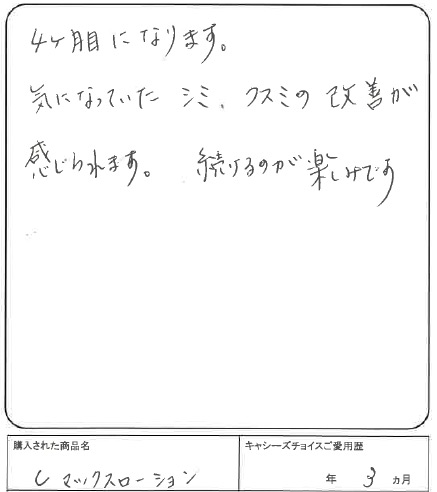 4ヶ月目になります。
気になっていた シミ、クスミの改善が
感じられます。 続けるのが楽しみです
購入された商品名
Cマックスローション
キャシーズチョイスご愛用歴
年 3 ヵ月